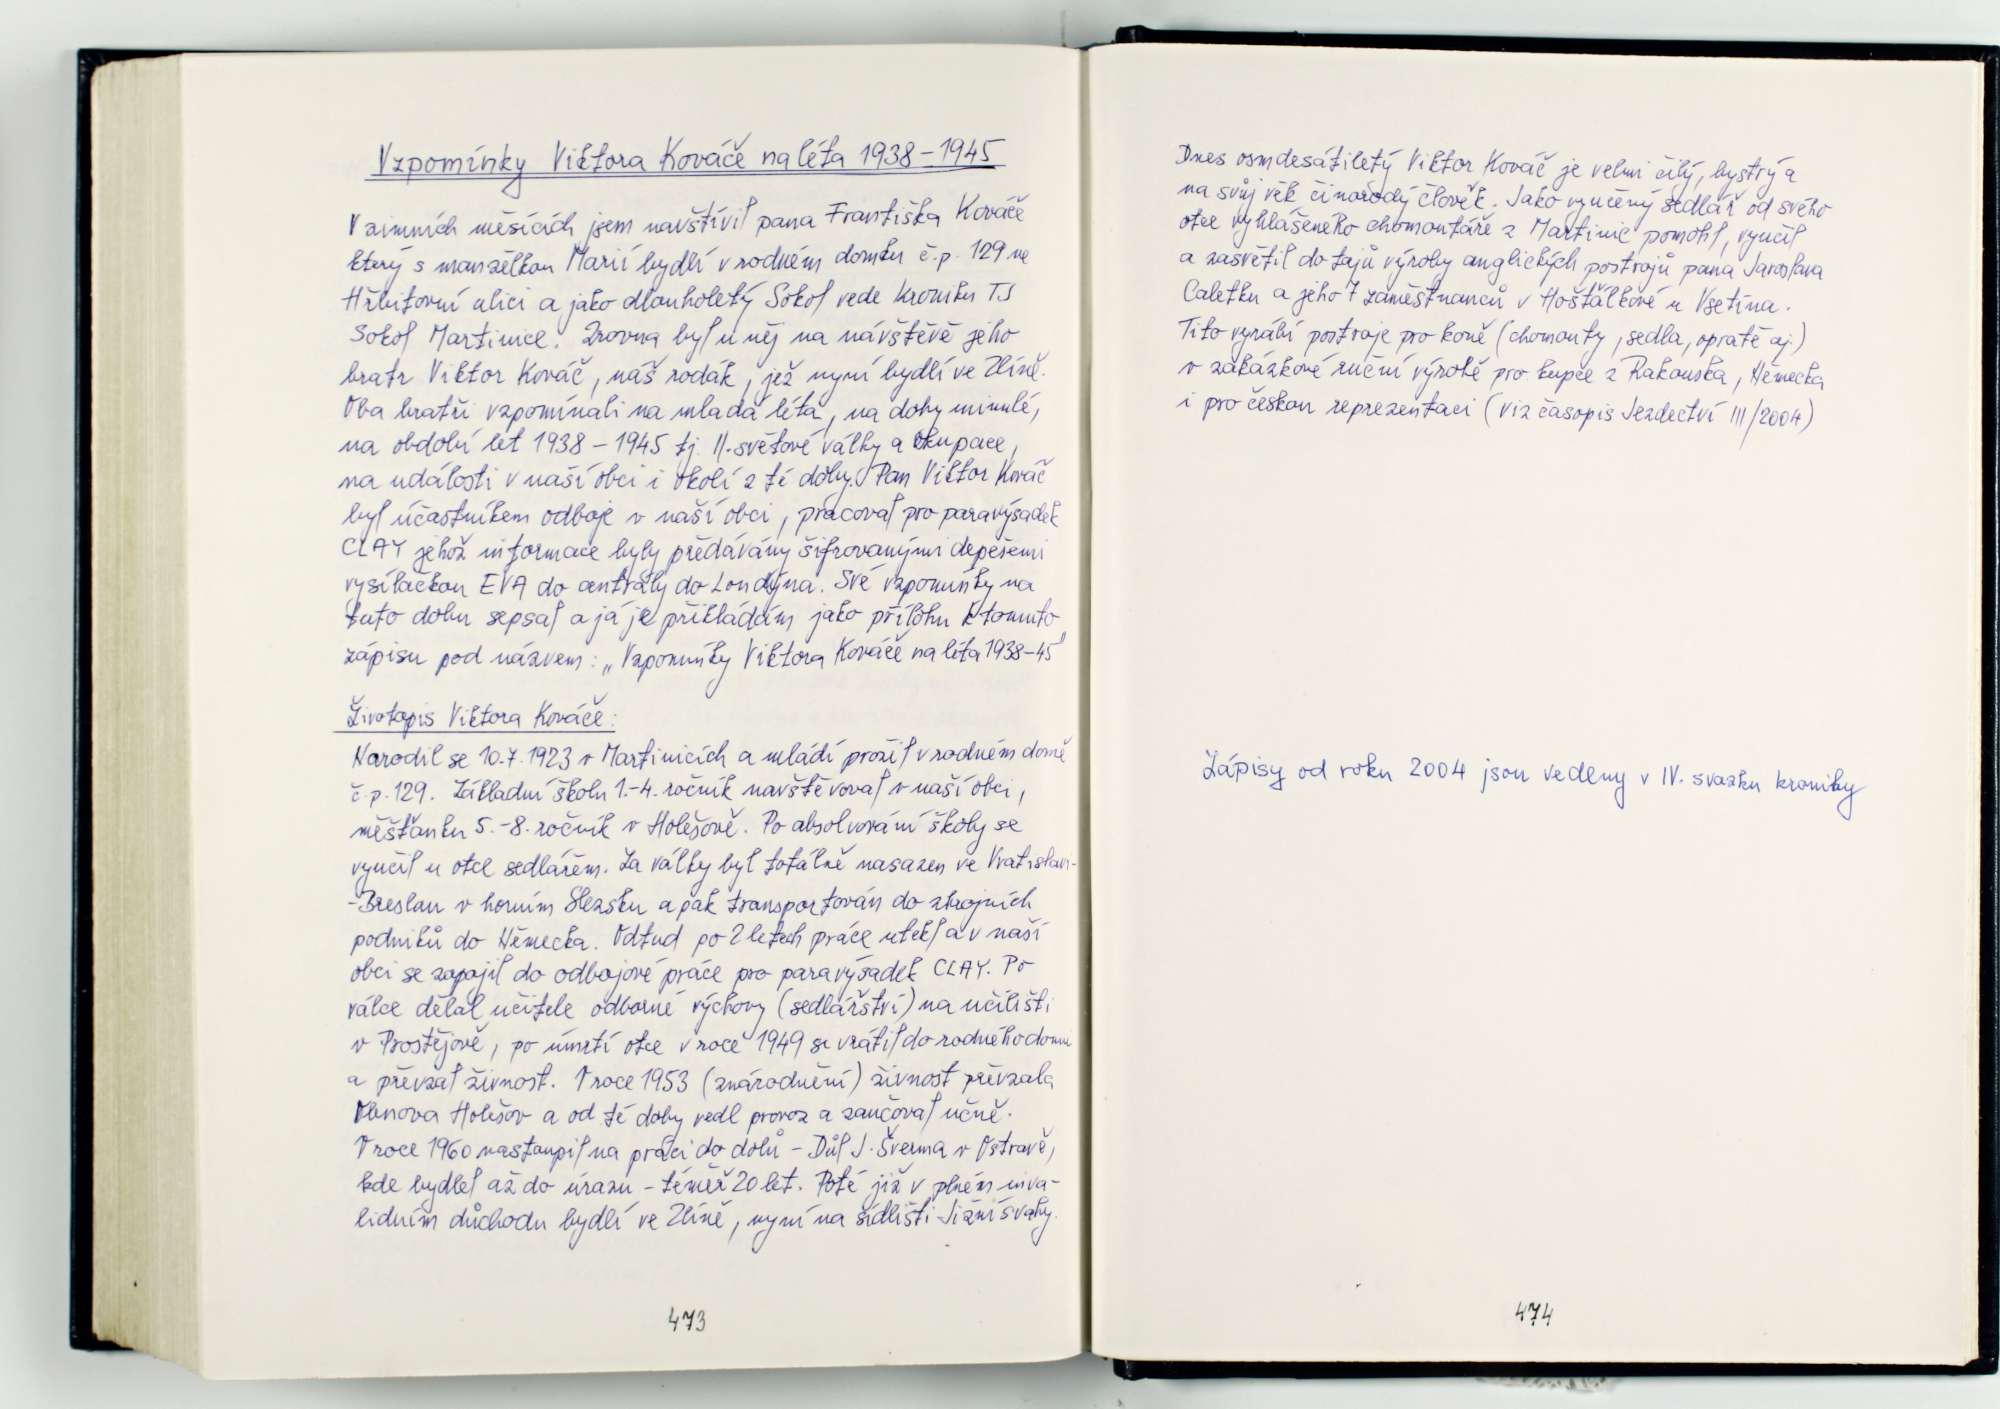 Vzpomínky Viktora Kováče na léta 1938-1945
V zimních měsících jsem navštívil pana Františka Kováče
který s manželkou Marií bydlí v rodném domku č.p. 129 ve
Hřbitovní ulici a jako dlouholetý Sokol vede kroniku TJ
Sokol Martinice. Zrovna byl u něj na návštěvě jeho
bratr Viktor Kováč, náš rodák, jež nyní bydlí ve Zlíně.
Oba bratři vzpomínali na mladá léta, na doby minulé,
na období let 1938 - 1945 tj. II. světové války a okupace,
na události v naší obci i okolí z té doby. Pan Viktor Kováč
byl účastníkem odboje v naší obci, pracoval pro paravýsadek
CLAY jehož informace byly předávány šifrovanými depešemi
vysílačkou EVA do centrály do Londýna. Své vzpomínky na
tuto dobu sepsal a já je přikládám jako přílohu k tomuto
zápisu pod názvem: „Vzpomínky Viktora Kováče na léta 1938-45"
Životopis Viktora Kováče:
Narodil se 10.7.1923 v Martinicích a mládí prožil v rodném domě
č.p. 129. Základní školu 1.-4. ročník navštěvoval v naší obci,
měšťanku 5.-8. ročník v Holešově. Po absolvování školy se
vyučil u otce sedlářem. Za války byl totálně nasazen ve Vratislavi-
-Breslau v horním Slezsku a pak transportován do zbrojních
podniků do Německa. Odtud po 2 letech práce utekl a v naší
obci se zapojil do odbojové práce pro paravýsadek CLAY. Po
válce dělal učitele odborné výchovy (sedlářství) na učilišti
v Prostějově, po úmrtí otce v roce 1949 se vrátil do rodného domu
a převzal živnost. V roce 1953 (znárodnění) živnost převzala
Obnova Holešov a od té doby vedl provoz a zaučoval učně.
V roce 1960 nastoupil na práci do dolů - Důl J. Šverma v Ostravě,
kde bydlel až do úrazu - téměř 20 let. Poté již v plném inva-
lidním důchodu bydlí ve Zlíně, nyní na sídlišti Jižní svahy.
473
Dnes osmdesátiletý Viktor Kováč je velmi čilý, bystrý a
na svůj věk činorodý člověk. Jako vyučený sedlář od svého
otce vyhlášeného chomoutáře z Martinic pomohl, vyučil
a zasvětil do tajů výroby anglických postrojů pana Jaroslava
Caletku a jeho 7 zaměstnanců v Hošťálkové u Vsetína.
Tito vyrábí postroje pro koně (chomouty, sedla, opratě aj.)
v zakázkové ruční výrobě pro kupce z Rakouska, Německa
i pro českou reprezentaci (viz časopis Jezdectví III/2004)
Zápisy od roku 2004 jsou vedeny v IV. svazku kroniky
474